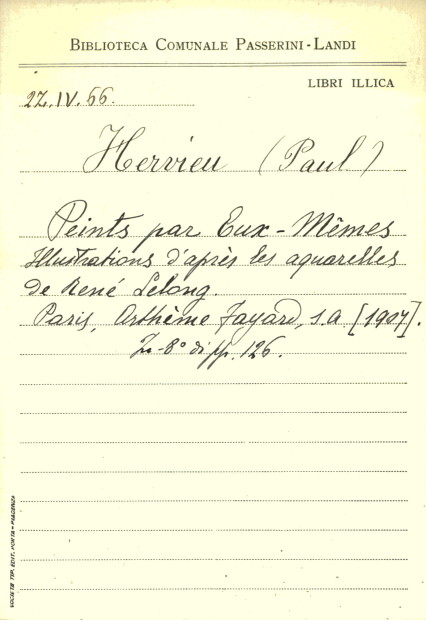 BIBLIOTECA COMUNALE PASSERINI-LANDI
LIBRI ILLICA
22.IV.66.
Hervieu (Paul)
Peints par Eux-Mêmes
Illustrations d'après les aquarelles
de René Lelong.
Paris, Arthème Fayard, s.a [1907].
In-8° di pp. 126.
SOCIETÀ TIP. EDIT. PORTA - PIACENZA